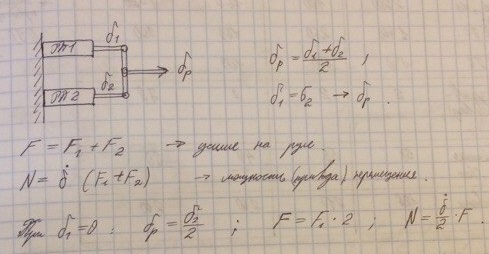 РМ1 δ₁
δр
РМ2 δ₂
δр = (δ₁ + δ₂)/2 ;
δ₁ = δ₂ → δр .
F = F₁ + F₂ → усилие на руле.
N = δ̇ (F₁ + F₂) → мощность (привода) перемещения.
При δ₁ = 0 : δр = δ₂/2 ; F = F₁ · 2 ; N = δ̇/2 · F.